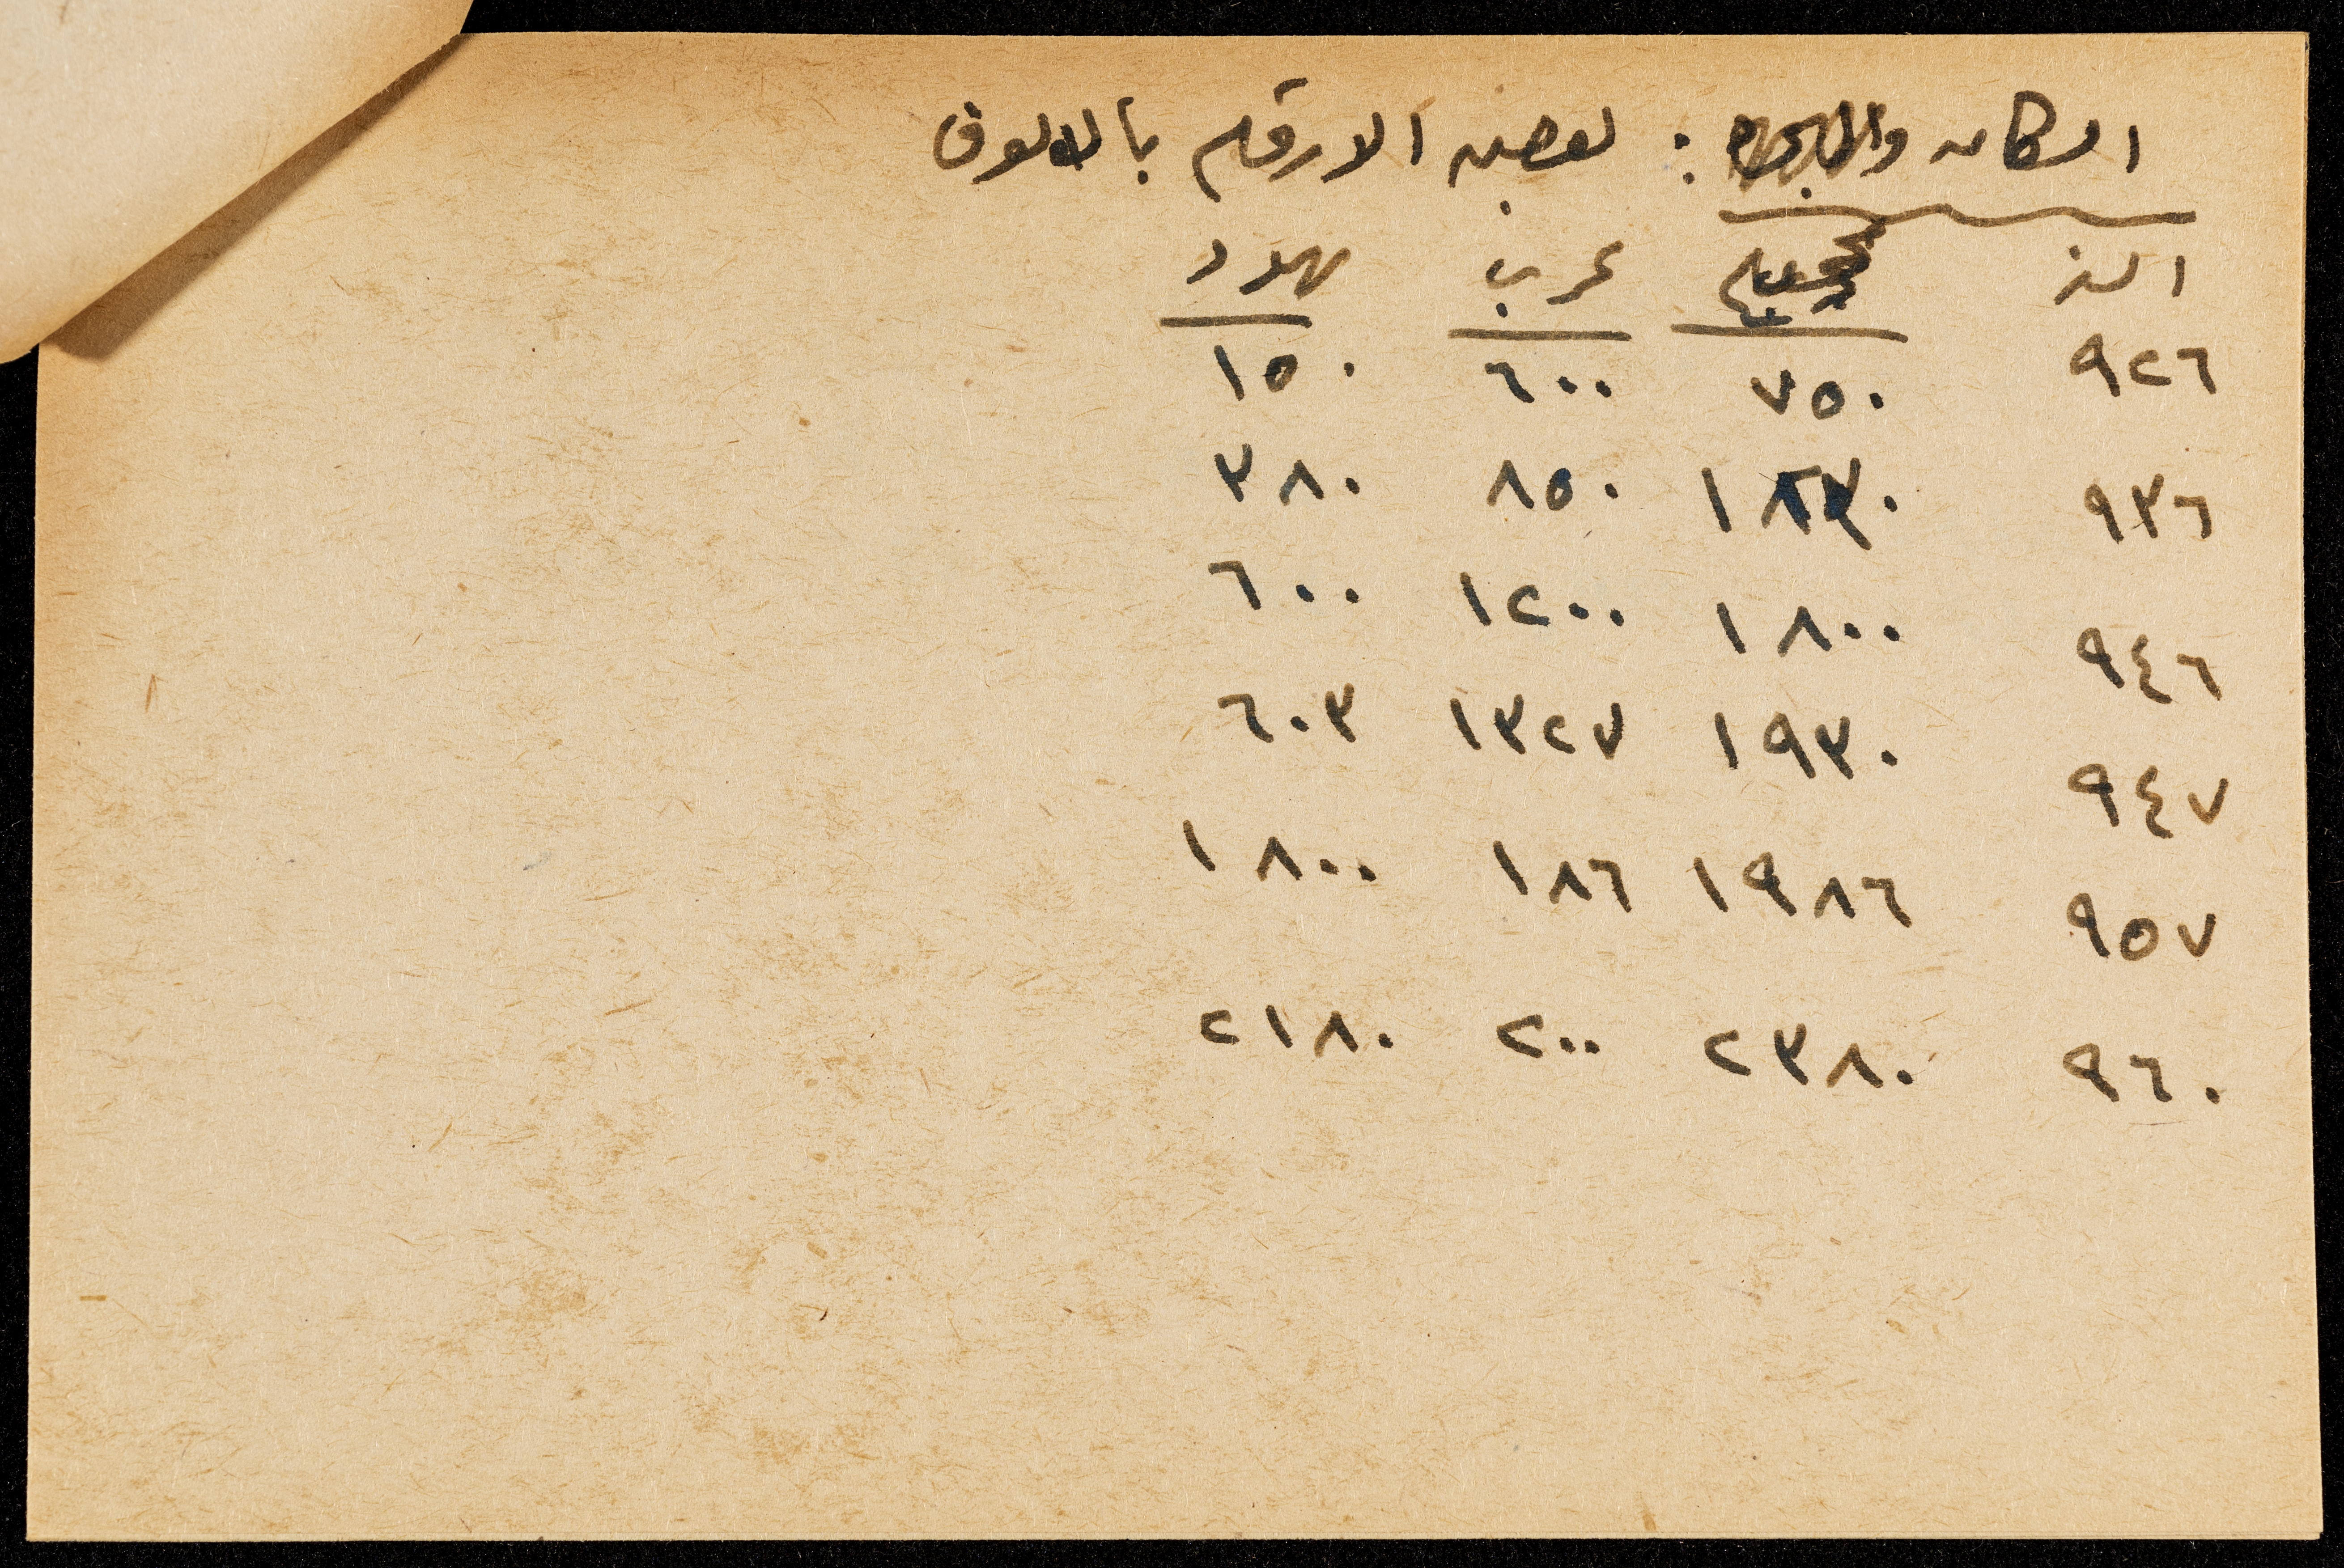 السكان والهجرة : لبعض الارقام بالالوف
السنة مجموع عرب يهود
٩٢٦ ٧٥٠ ٦٠٠ ١٥٠
٩٣٦ ١٢٣٠ ٨٥٠ ٣٨٠
٩٤٦ ١٨٠٠ ١٢٠٠ ٦٠٠
٩٤٧ ١٩٣٠ ١٣٢٧ ٦٠٣
٩٥٧ ١٩٨٦ ١٨٦ ١٨٠٠
٩٦٠ ٢٣٨٠ ٢٠٠ ٢١٨٠